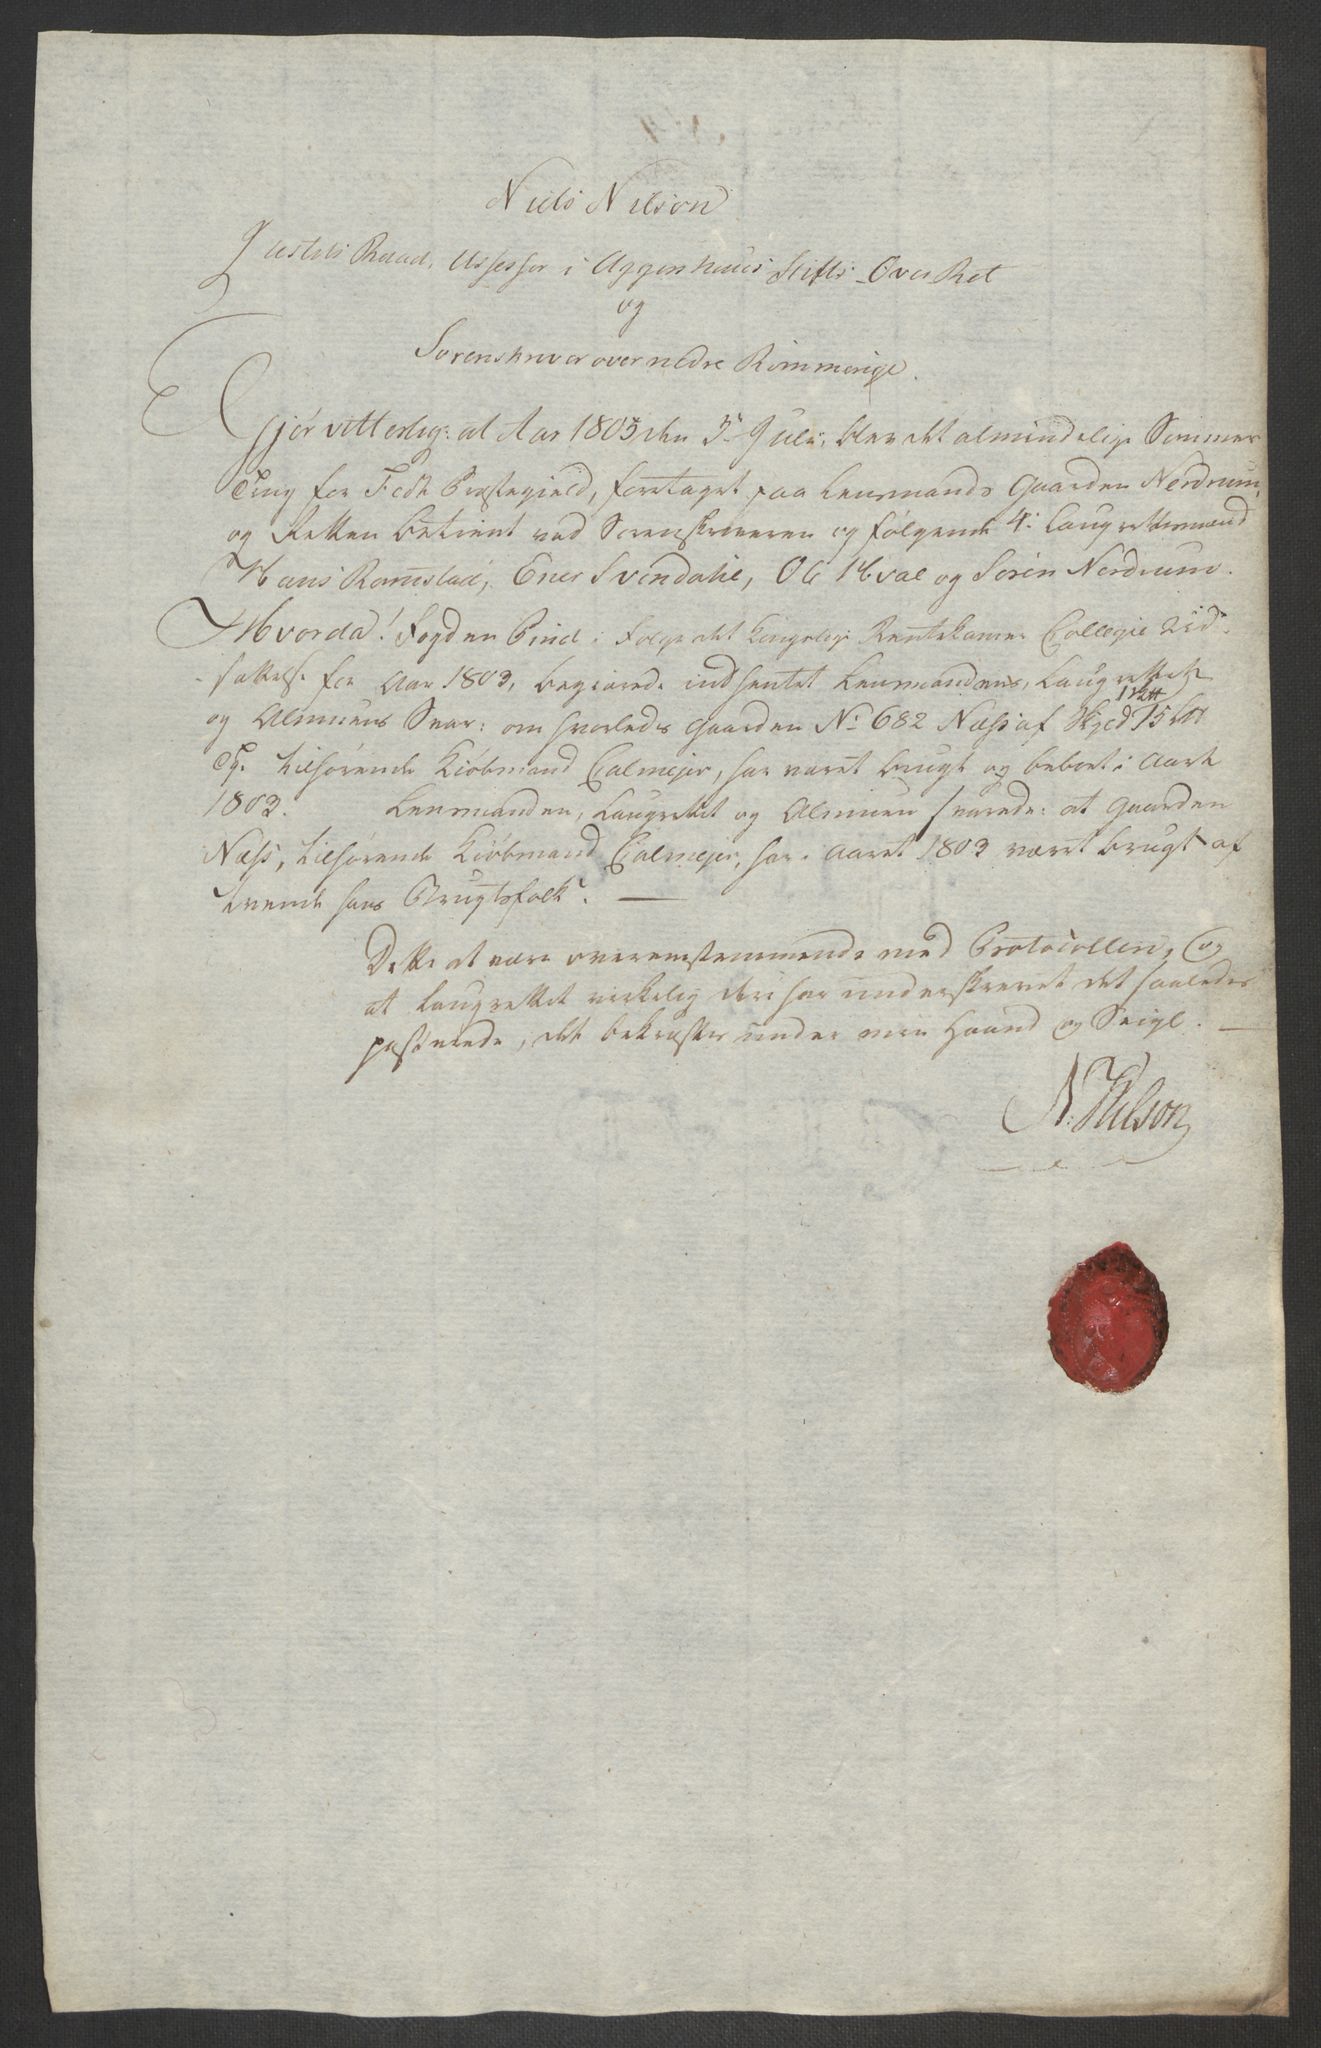 Niels Nilson
Justits Raad, Assessor i Aggershuus Stifts Over Ret
og
Sorenskriver over nedre Rommerige.
Gjör vitterlig: at Aar 1805 den 3 Juli, blev det almindelige Sommer
Ting for Fedt Præstegield, foretaget paa Lensmands Gaarden Nerdrum,
og Retten betient ved Sorenskriveren og fölgende 4 Laugrettesmænd
Hans Ramstad, Ener Svendalie, Ole Hval og Sören Nerdrum.
Hvorda! Fogden Pind i Fölge det kongelige Rentekamer Collegie
for Aar 1803, begierede indhentet Lensmandens, Laugrettets
og Almuens Svar: om hvorledes Gaarden No 682 Næss af Skyld 15 L℔ 1½ ℔
Tge tilhörende Kiöbmand Calmejer, har været brugt og beboet i Aaret
1803. Lensmanden, Laugrettet og Almuen svarede: at Gaarden
Næss, tilhörende Kiöbmand Calmejer, har i Aaret 1803 været brugt af
tvende hans Brugsfolk. —
Dette at være overensstemmende med Protocollen, og
at Laugrettet virkelig deri har underskrevet det saaledes
passerede, det bekræftes under min Haand og Seigl. —
N. Nilson